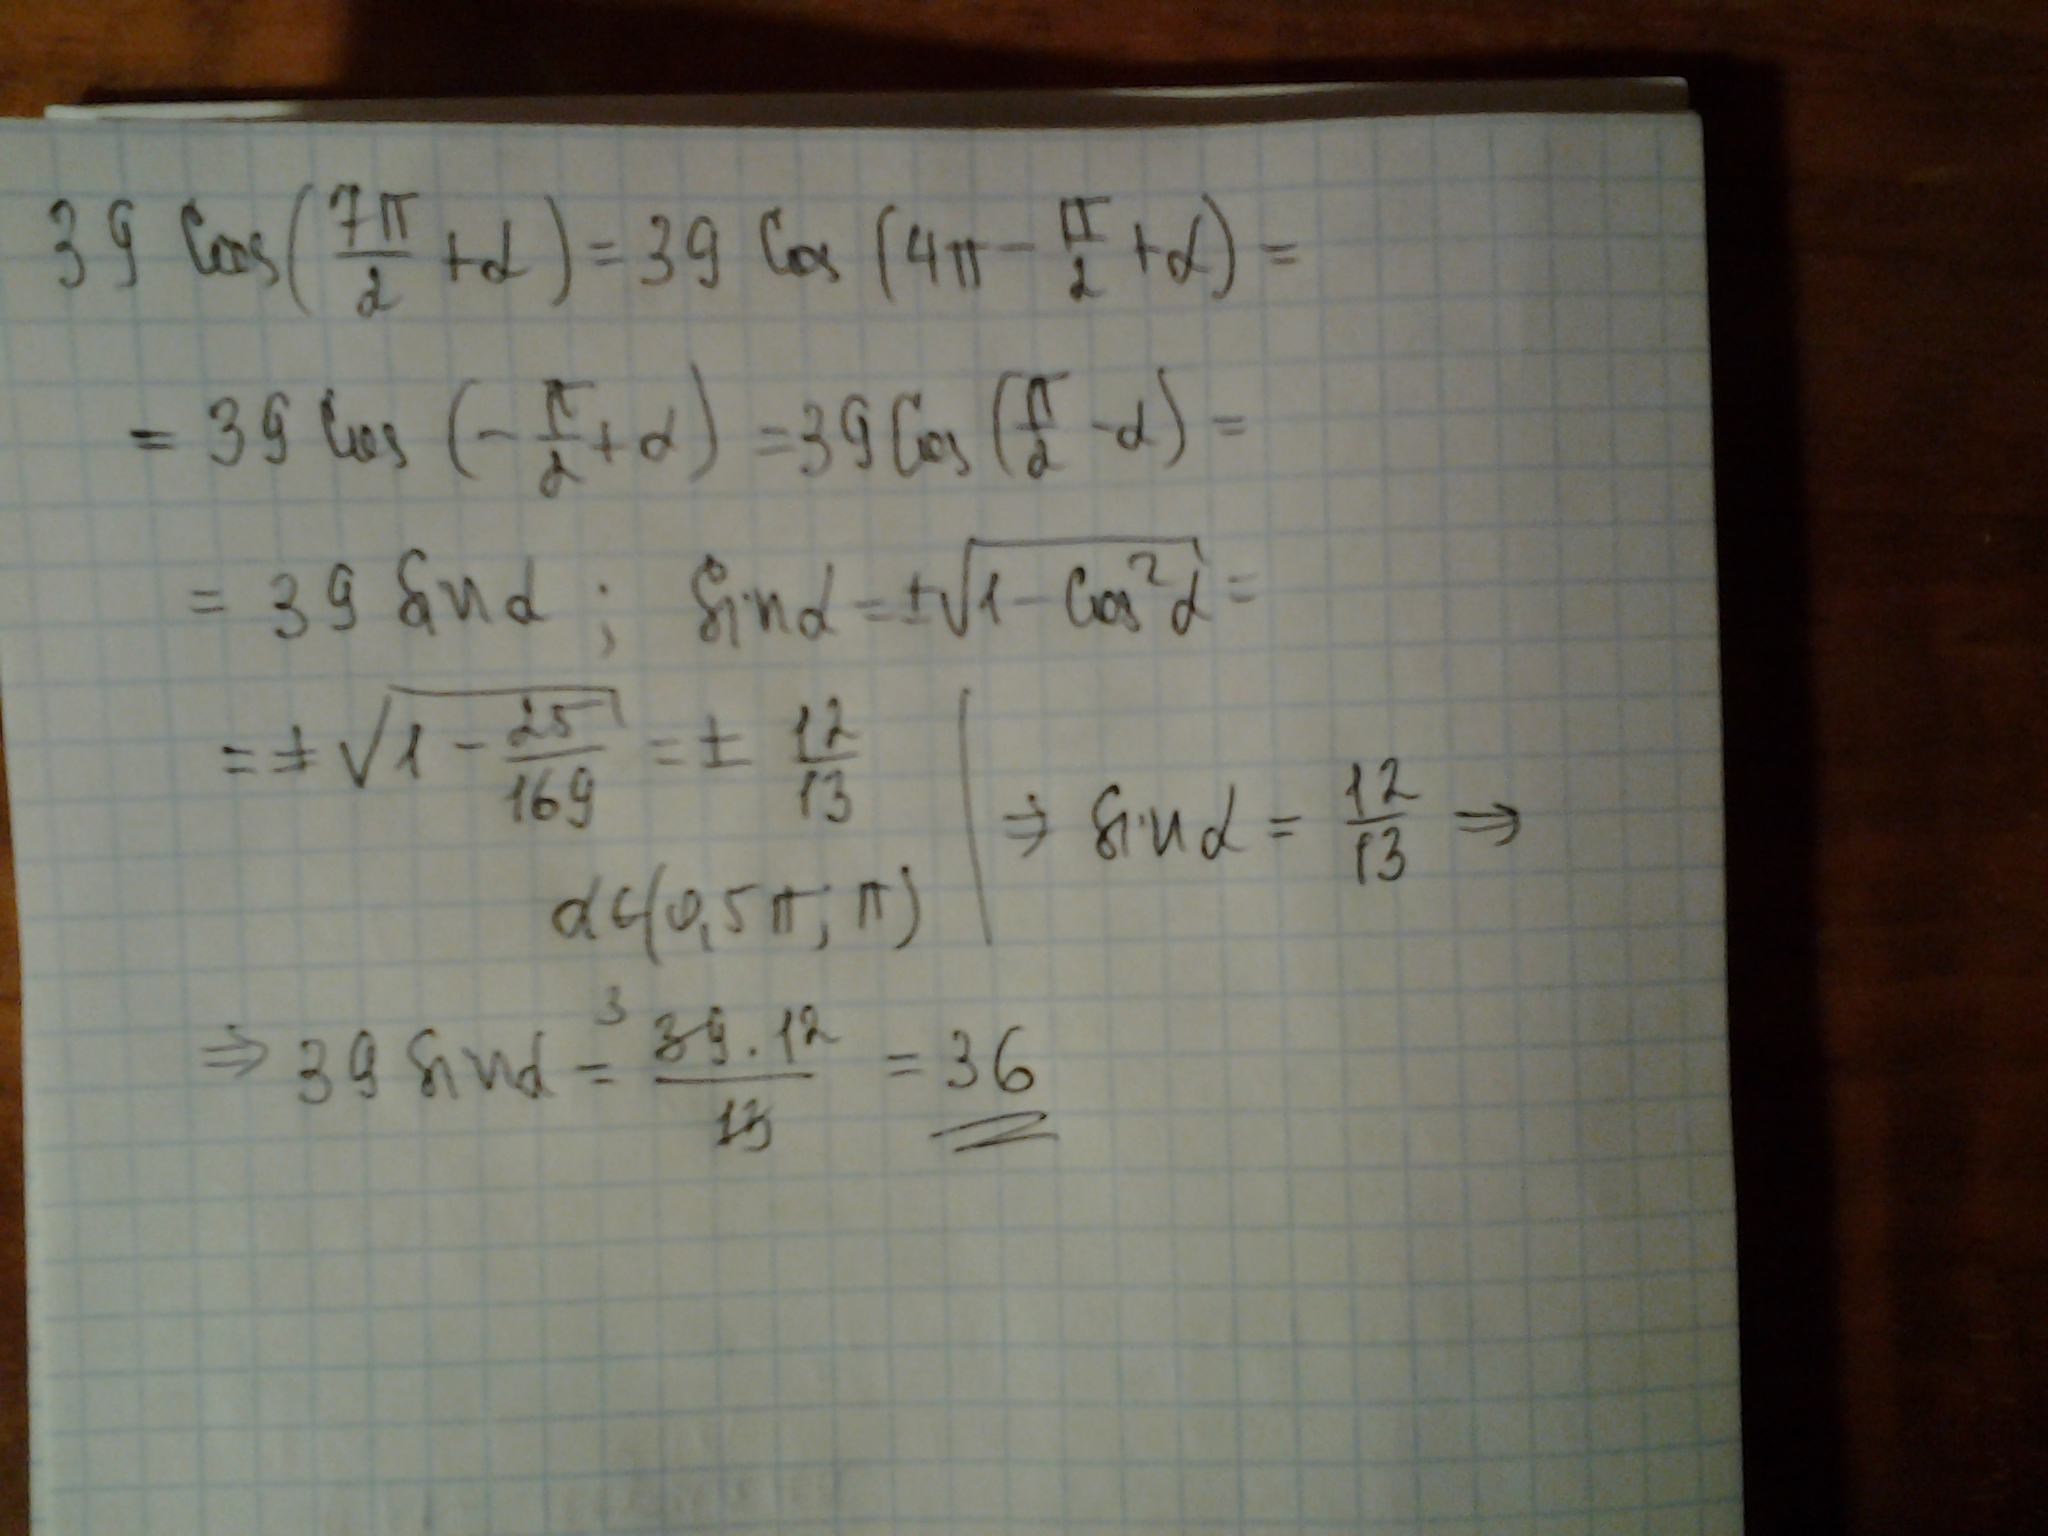 39 Cos(7π/2 + α) = 39 Cos (4π - π/2 + α) =
= 39 Cos (-π/2 + α) = 39 Cos (π/2 - α) =
= 39 Sin α ; Sin α = ±√(1 - Cos²α) =
= ±√(1 - 25/169) = ± 12/13
⇒ Sin α = 12/13 ⇒
α ∈ (0,5π; π)
⇒ 39 Sin α = ³ 39 · 12/13 = 36